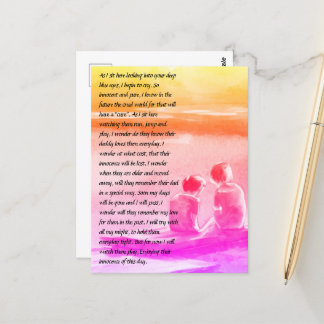 As I sit here looking into your deep
blue eyes, I begin to cry. So
innocent and pure, I know in the
future the cruel world for that will
have a "cure". As I sit here
watching them run, jump and
play, I wonder do they know their
daddy loves them everyday. I
wonder at what cost, that their
innocence will be lost. I wonder
when they are older and moved
away, will they remember their dad
in a special way. Soon my days
will be gone and I will pass, I
wonder will they remember my love
for them in the past. I will try with
all my might, to hold them
everyday tight. But for now I will
watch them play. Enjoying their
innocence of this day.